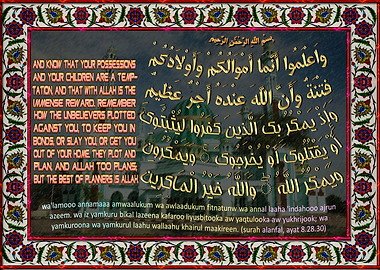 بسم الله الرحمن الرحيم
AND KNOW THAT YOUR POSSESSIONS
AND YOUR CHILDREN ARE A TEMP-
TATION, AND THAT WITH ALLAH IS THE
IMMENSE REWARD. REMEMBER
HOW THE UNBELIEVERS PLOTTED
AGAINST YOU, TO KEEP YOU IN
BONDS, OR SLAY YOU, OR GET YOU
OUT OF YOUR HOME. THEY PLOT AND
PLAN, AND ALLAH TOO PLANS;
BUT THE BEST OF PLANNERS IS ALLAH
واعلموا أنما أموالكم وأولادكم
فتنة وأن الله عنده أجر عظيم
وإذ يمكر بك الذين كفروا ليثبتوك
أو يقتلوك أو يخرجوك ويمكرون
ويمكر الله والله خير الماكرين
wa'lamooo annamaaa amwaalukum wa awlaadukum fitnatunw.wa annal laaha 'indahooo ajrun
azeem. wa iz yamkuru bikal lazeena kafaroo liyusbitooka aw yaqtulooka aw yukhrijook; wa
yamkuroona wa yamkurul laahu wallaahu khairul maakireen. (surah alanfal, ayat 8.28.30)